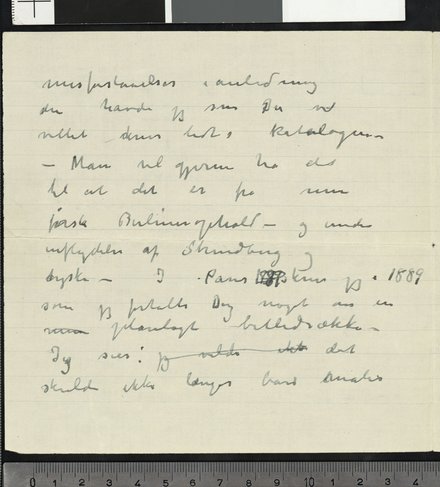 misforståelser i anledning
den havde jeg som Du ved
villet skrive lidt i Katalogen –
– Man vil gjerne ha det
til at det er fra min
første Berlinerophold – og under
inflydelse af Strindberg og
tyske – I Paris skrev jeg i 1889
som jeg fortalte Dig noget om en
planlagt billedrække –
Jeg skrev: jeg vilde ikke det
skulde ikke længer bare males